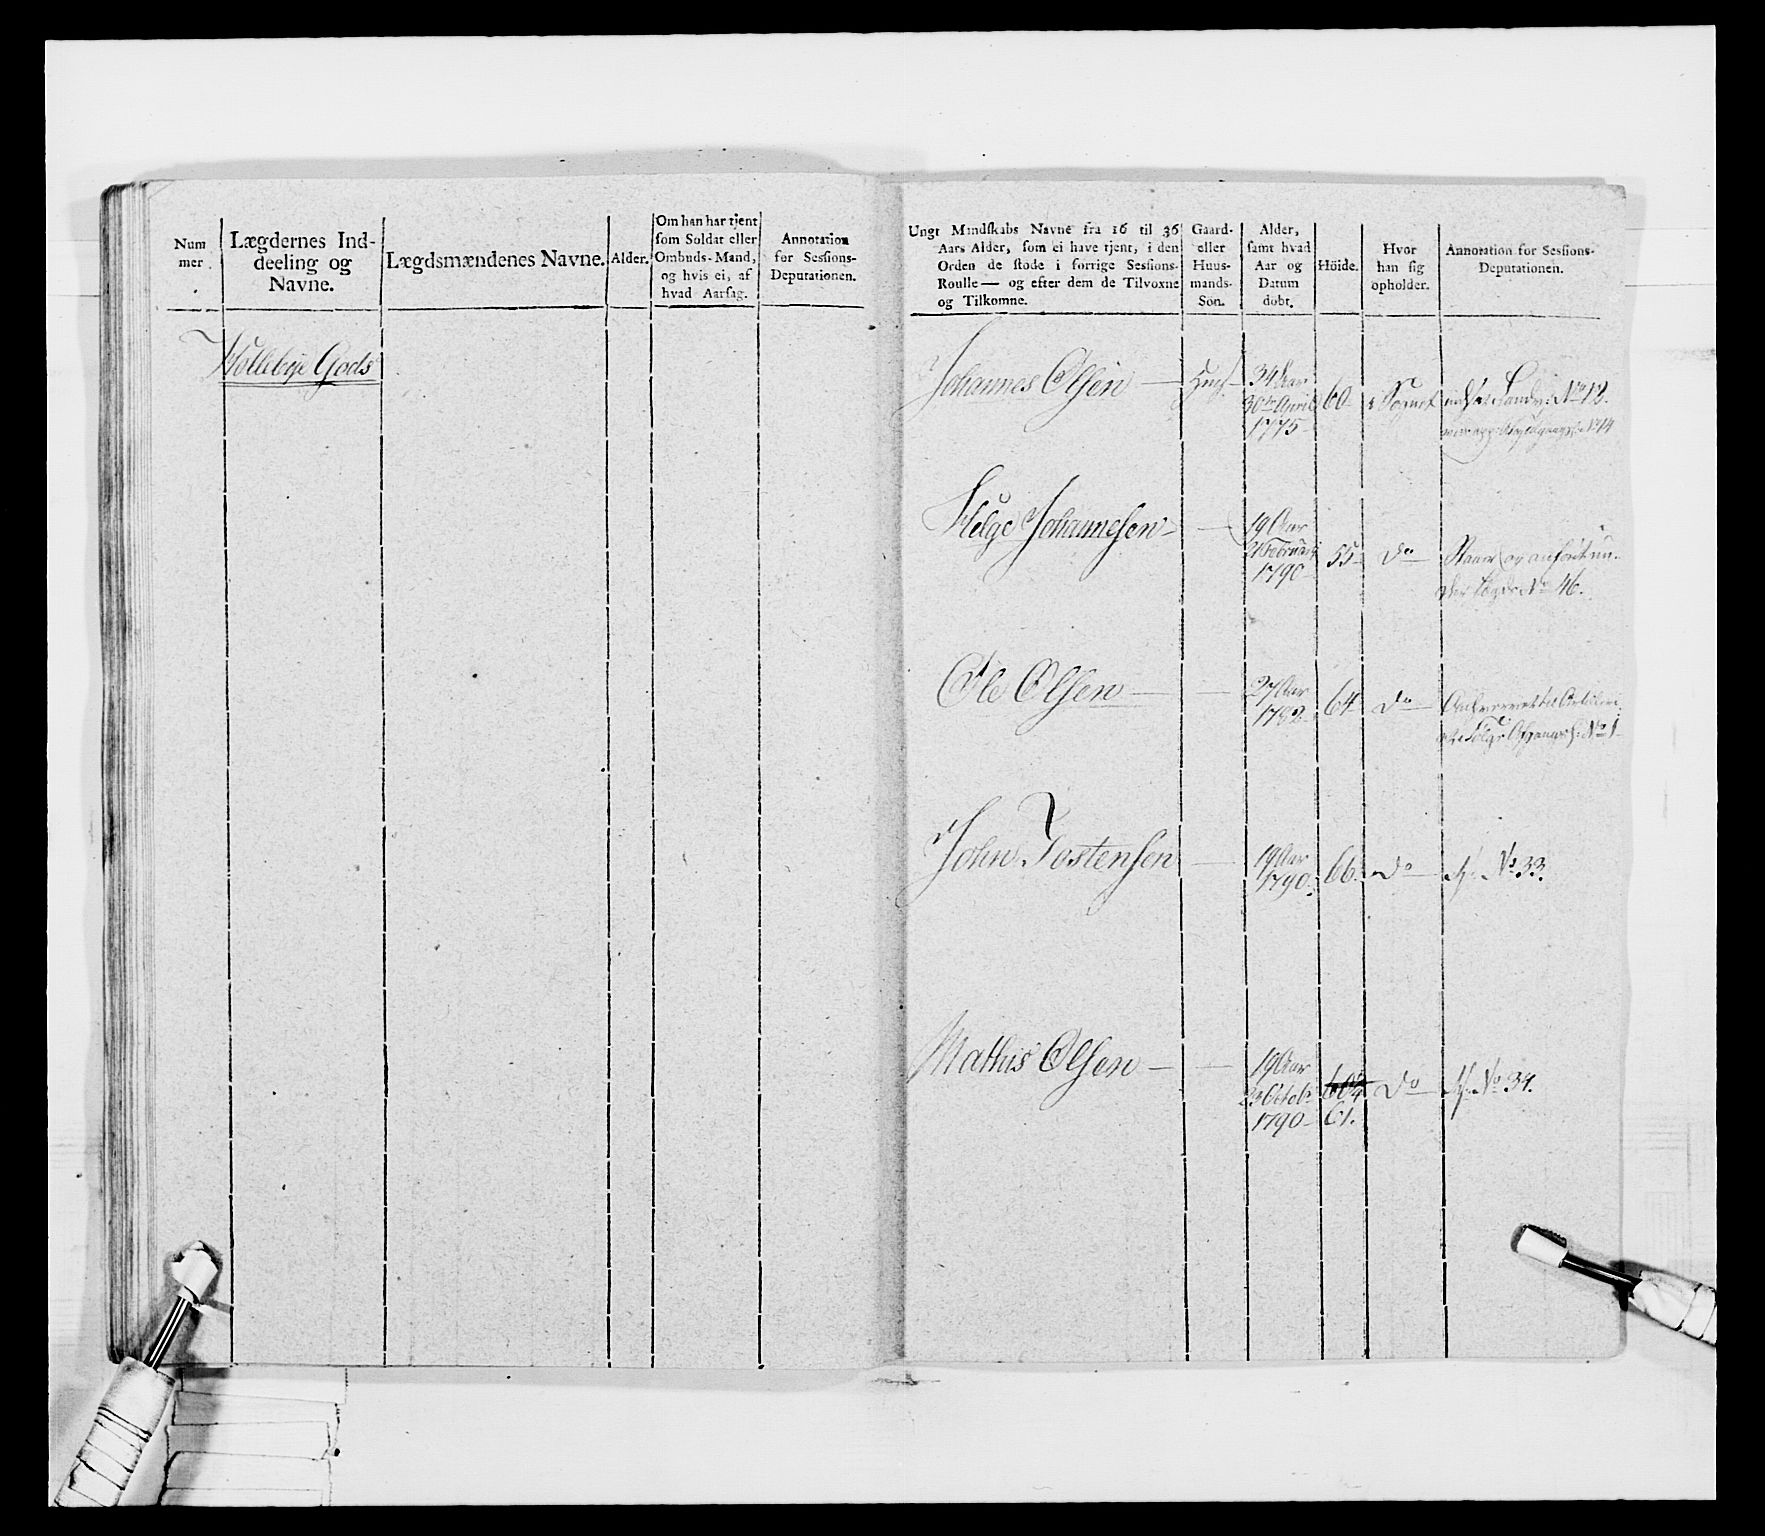 Num
mer
Lægdernes Ind-
deeling og
Navne.
Lægdsmændenes Navne.
Alder.
Om han har tjent
som Soldat eller
Ombuds-Mand,
og hvis ei, af
hvad Aarsag.
Annotation
for Sessions-
Deputationen.
Ungt Mandskabs Navne fra 16 til 36
Aars Alder, som ei have tjent, i den
Orden de stode i forrige Sessions-
Roulle — og efter dem de Tilvoxne
og Tilkomne.
Gaard-
eller
Huus-
mands-
Søn.
Alder,
samt hvad
Aar og
Datum
dobt.
Höide.
Hvor
han sig
opholder.
Annotation for Sessions-
Deputationen.
Holleby Gods
Johannes Olsen — 34 Aar 60 i Sognet No 12.
30te April
1775
Helge Johannesen — 19 Aar
Februar 55 Do
1790 No 46.
Ole Olsen — 27 Aar 64 Do
1782 No 1
John Tostensen — 19 Aar 66 Do No 33.
1790
Mathis Olsen — 19 Aar
23 Octobr Do No 34.
1790 61.